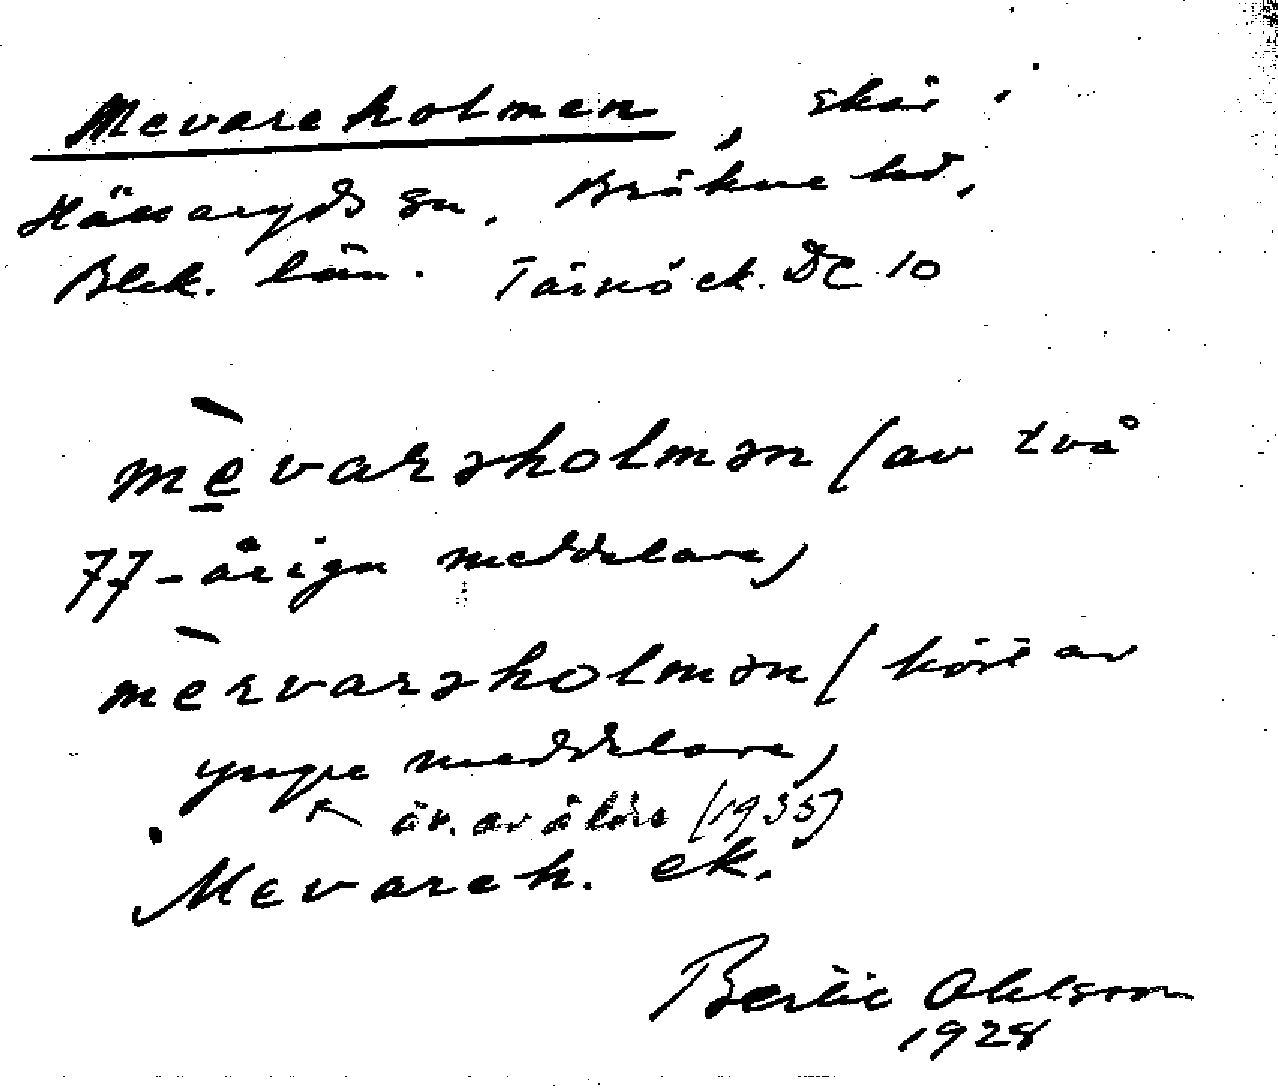 Mevareholmen, skär i
Hällaryds sn, Bräkne hd,
Blek. län. Tärnö ek. DC 10
mèvarəholmən (av två
77-åriga meddelare)
mèrvarəholmən (hört av
yngre meddelare)
äv. av äldre (1935)
Mevareh. ek.
Bertil Ohlsson
1928